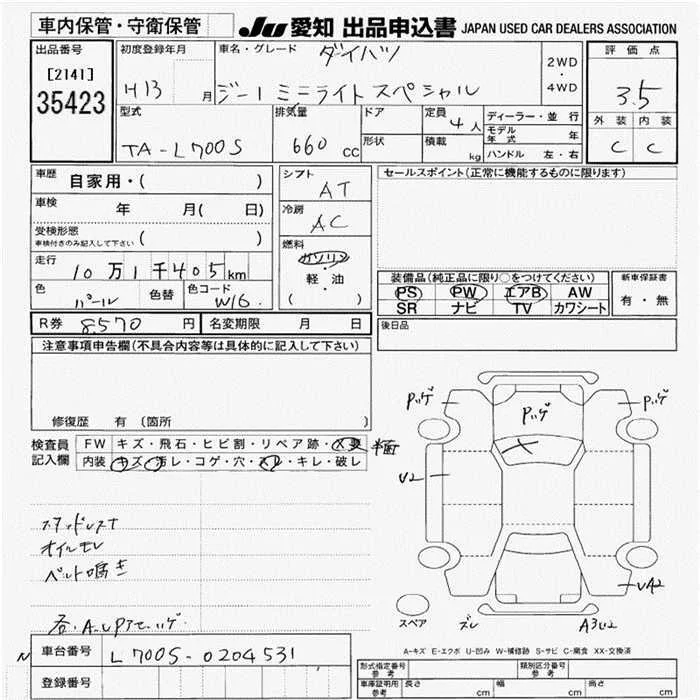 車内保管・守衛保管
JU 愛知 出品申込書 JAPAN USED CAR DEALERS ASSOCIATION
出品番号
[2141]
35423
初度登録年月
H13 月
車名・グレード ダイハツ
ジーノ ミニライトスペシャル
2WD
・
4WD
評価点
3.5
外装 内装
C C
型式
TA-L700S
排気量
660 cc
ドア
形状
定員
4人
積載
kg
ディーラー・並行
モデル年式 年
ハンドル 左・右
車歴 自家用・( )
車検 年 月( 日)
受検形態
車検付きのみ記入して下さい ( )
走行 10万1千405km
色 パール 色替 色コード W16
シフト
AT
冷房
AC
燃料
ガソリン
・
軽・油
( )
セールスポイント(正常に機能するものに限ります)
装備品(純正品に限り○をつけてください)
PS PW エアB AW
SR ナビ TV カワシート
新車保証書
有・無
R券 8570円 名変期限 月 日
後日品
注意事項申告欄(不具合内容等は具体的に記入して下さい)
修復歴 有 (箇所 )
検査員
記入欄
FW キズ・飛石・ヒビ割・リペア跡・X要
内装 キズ・汚レ・コゲ・穴・スレ・キレ・破レ
スタッドレス
オイルモレ
ベルト鳴き
Pハゲ
Pハゲ
Pハゲ
U2
UA2
A3U2
ズレ
スペア
A-キズ E-エクボ U-凹み W-補修跡 S-サビ C-腐食 XX-交換済
車台番号 L700S-0204531
登録番号
形式指定番号
参考
類別区分番号
参考
車庫証明用
参考
長さ cm 幅 cm 高さ cm